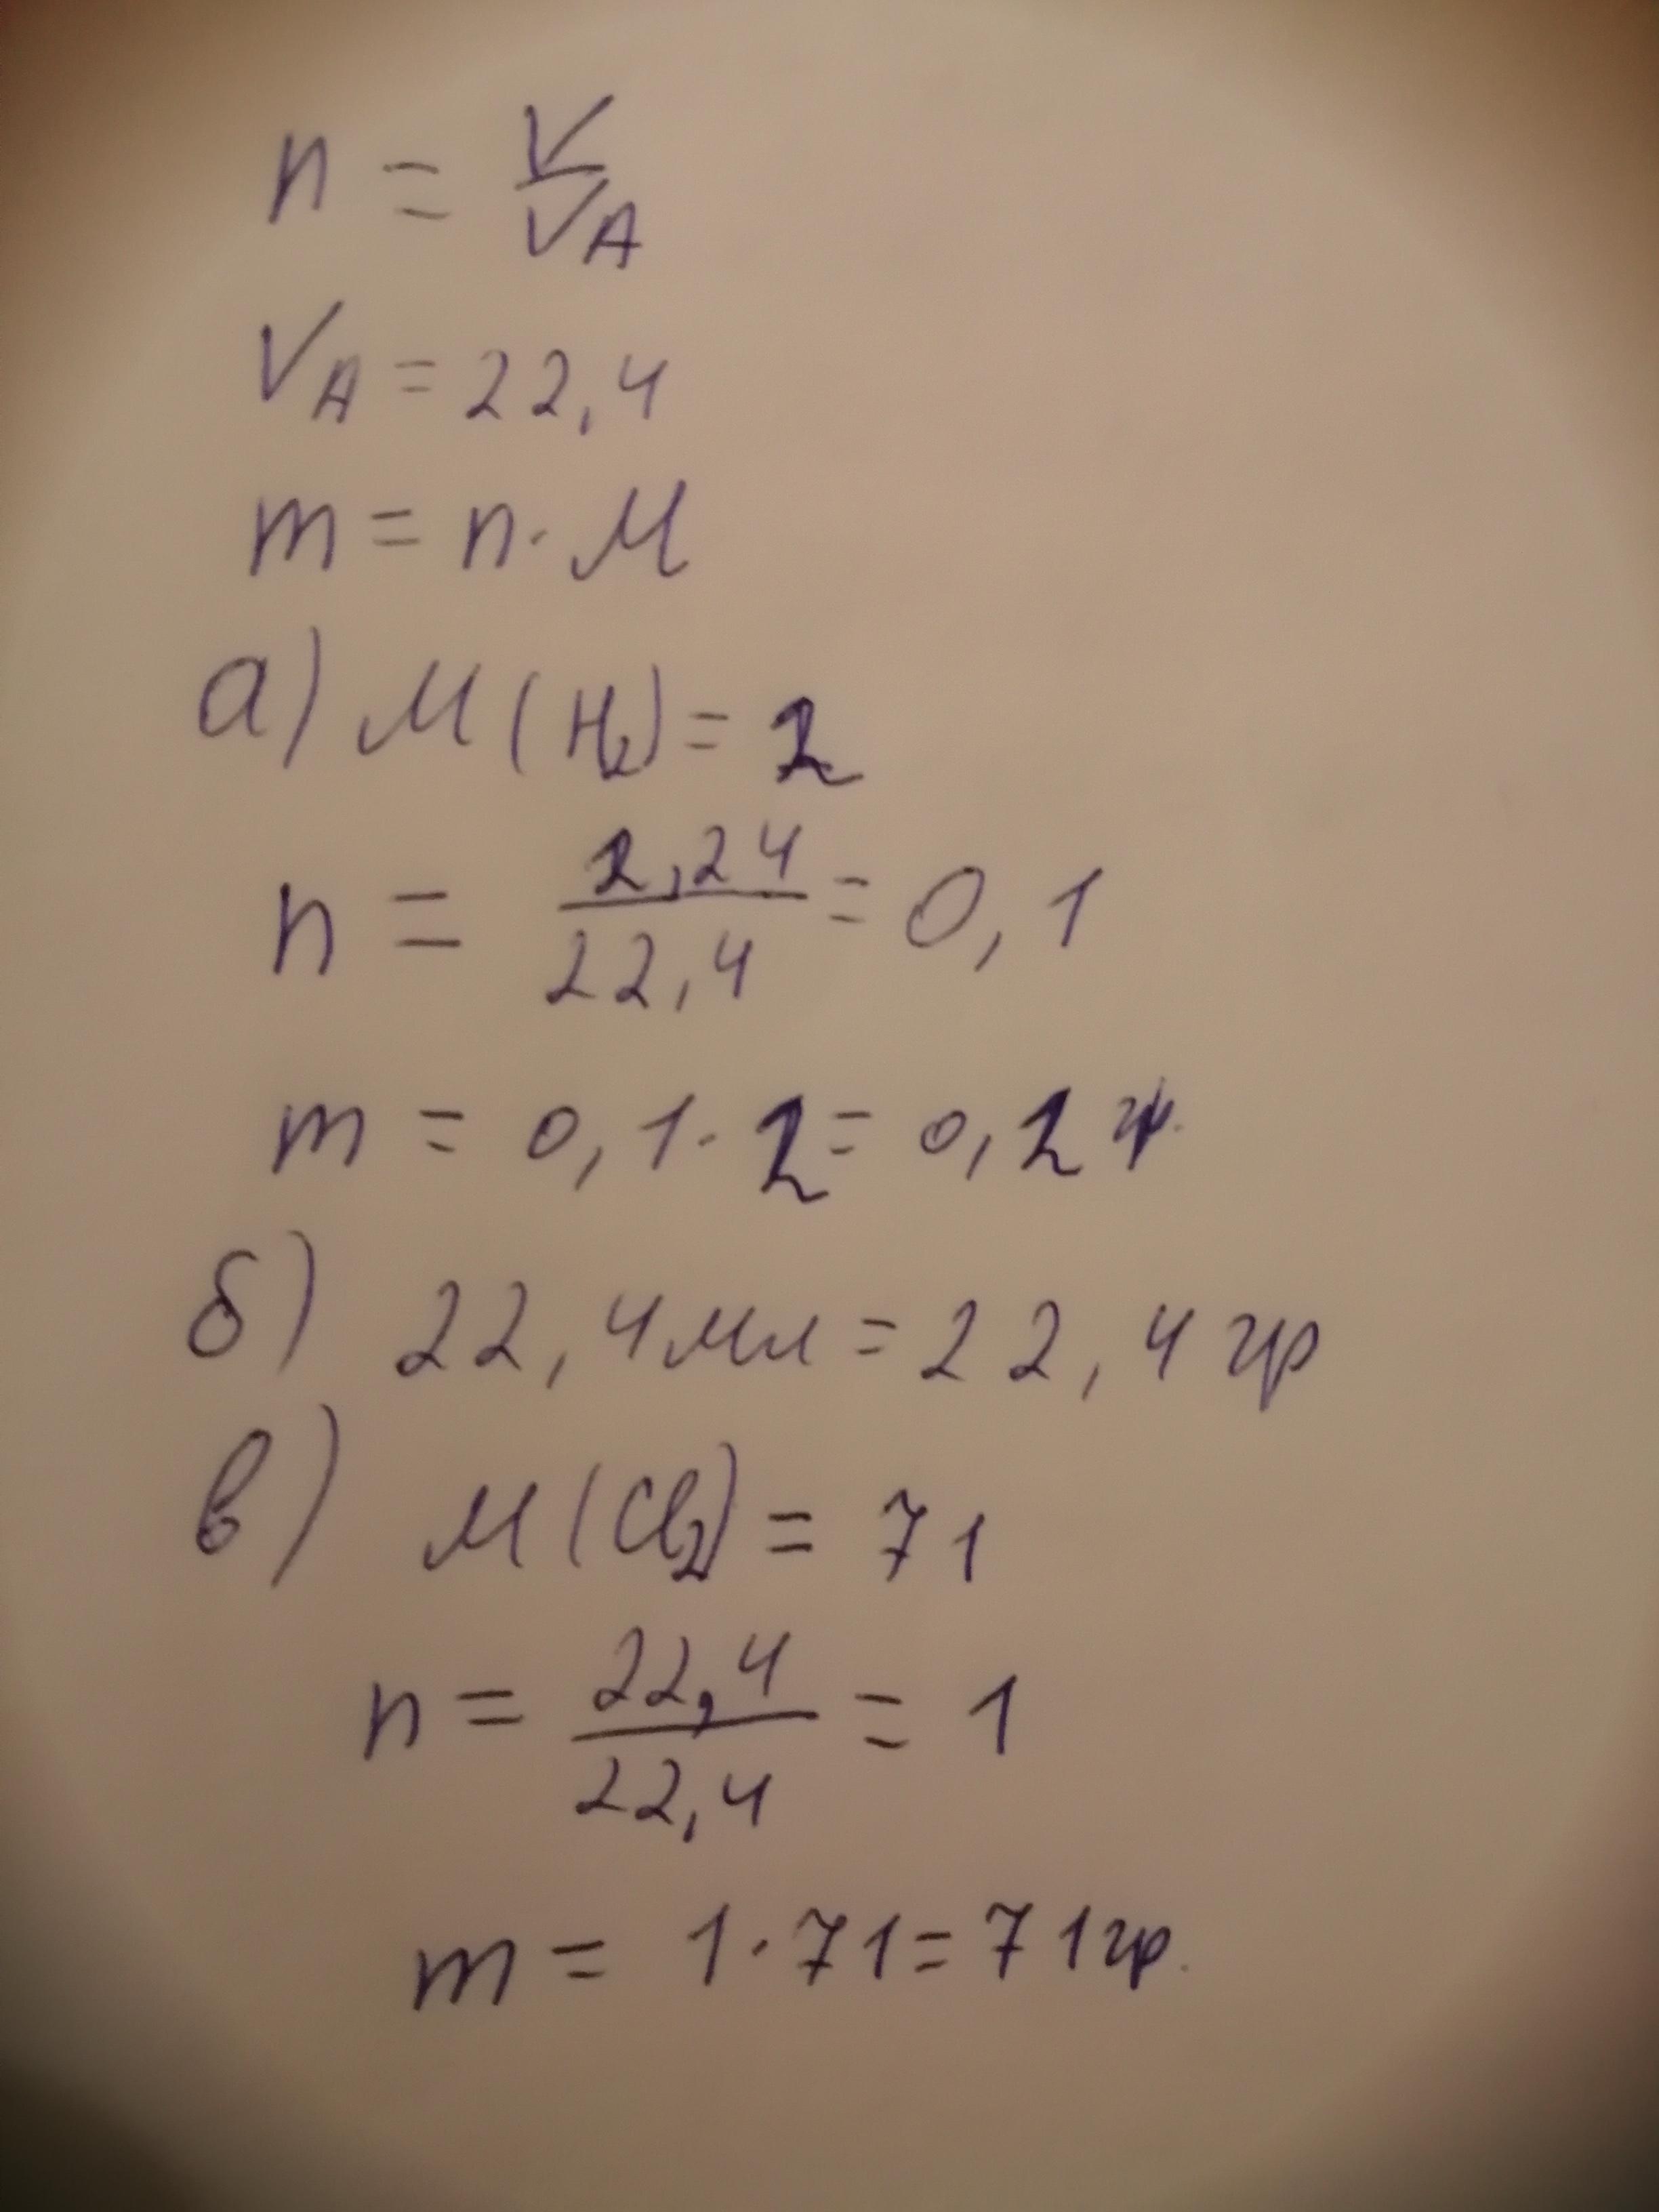 n = V/VA
VA = 22,4
m = n · M
а) M(H₂) = 2
n = 2,24/22,4 = 0,1
m = 0,1 · 2 = 0,2 гр.
б) 22,4 мл = 22,4 гр
в) M(Cl₂) = 71
n = 22,4/22,4 = 1
m = 1 · 71 = 71 гр.